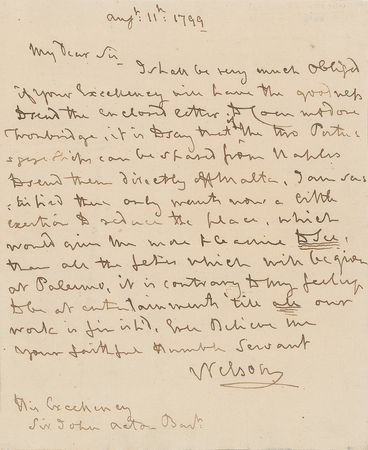 augt: 11th: 1799
My Dear Sir
I shall be very much Obliged
if your Excellency will have the goodness
to send the enclosed letter to Commodore
Troubridge, it is to say that if the two Portu=
=gueze Ships can be spared from Naples
to send them directly off Malta, I am sa=
=tisfied there only wants now a little
exertion to reduce the place, which
would give me more pleasure to see,
than all the fetes which will be given
at Palermo, it is contrary to my feelings
to be at entertainments 'till all our
work is finish'd, Ever Believe me
Your faithful Humble Servant
Nelson
His Excellency
Sir John Acton Bart: